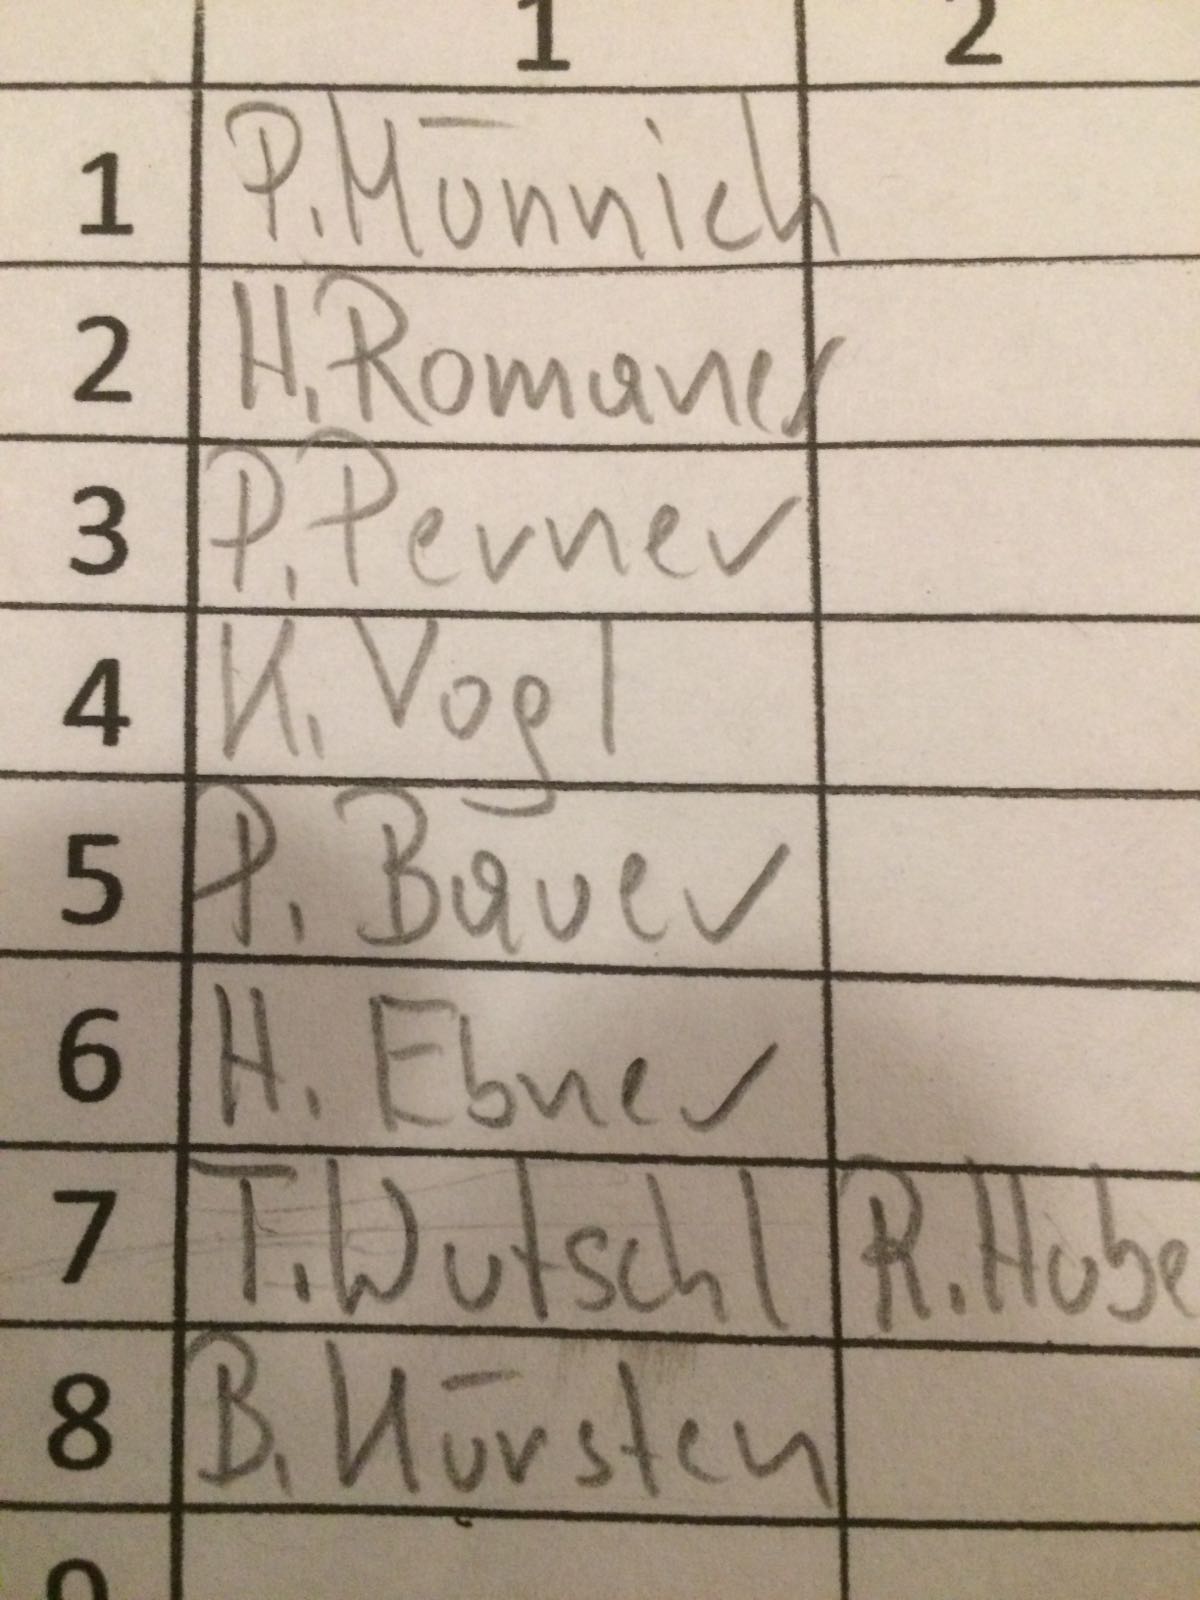 1 2
1 P. Münnich
2 H. Romaner
3 P. Perner
4 K. Vogl
5 P. Bauer
6 H. Ebner
7 T. Wutschl R. Hube
8 B. Kürsten
9